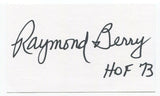 Raymond Berry
HOF 73